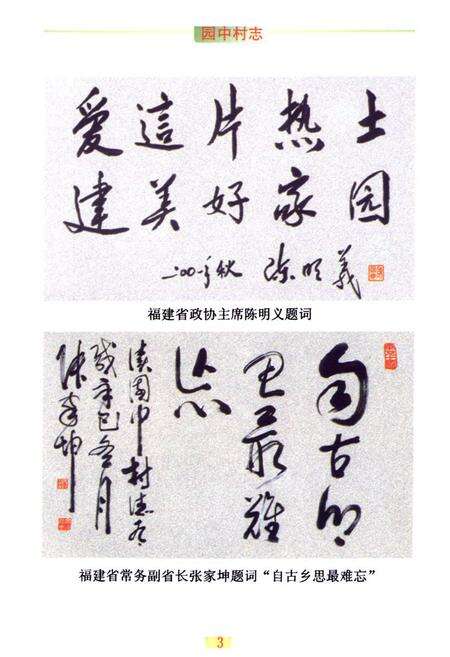 园中村志
爱這片热土
建美好家园
二00一年秋 陈明義
福建省政协主席陈明义题词
自古乡
思最難
忘
读園中村志有
感辛巳冬月
张家坤
福建省常务副省长张家坤题词“自古乡思最难忘”
3